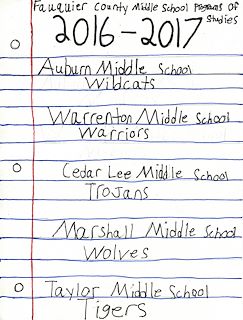 Fauquier County Middle School Programs Of
Studies
2016-2017
Auburn Middle School
Wildcats
Warrenton Middle School
Warriors
Cedar Lee Middle School
Trojans
Marshall Middle School
Wolves
Taylor Middle School
Tigers